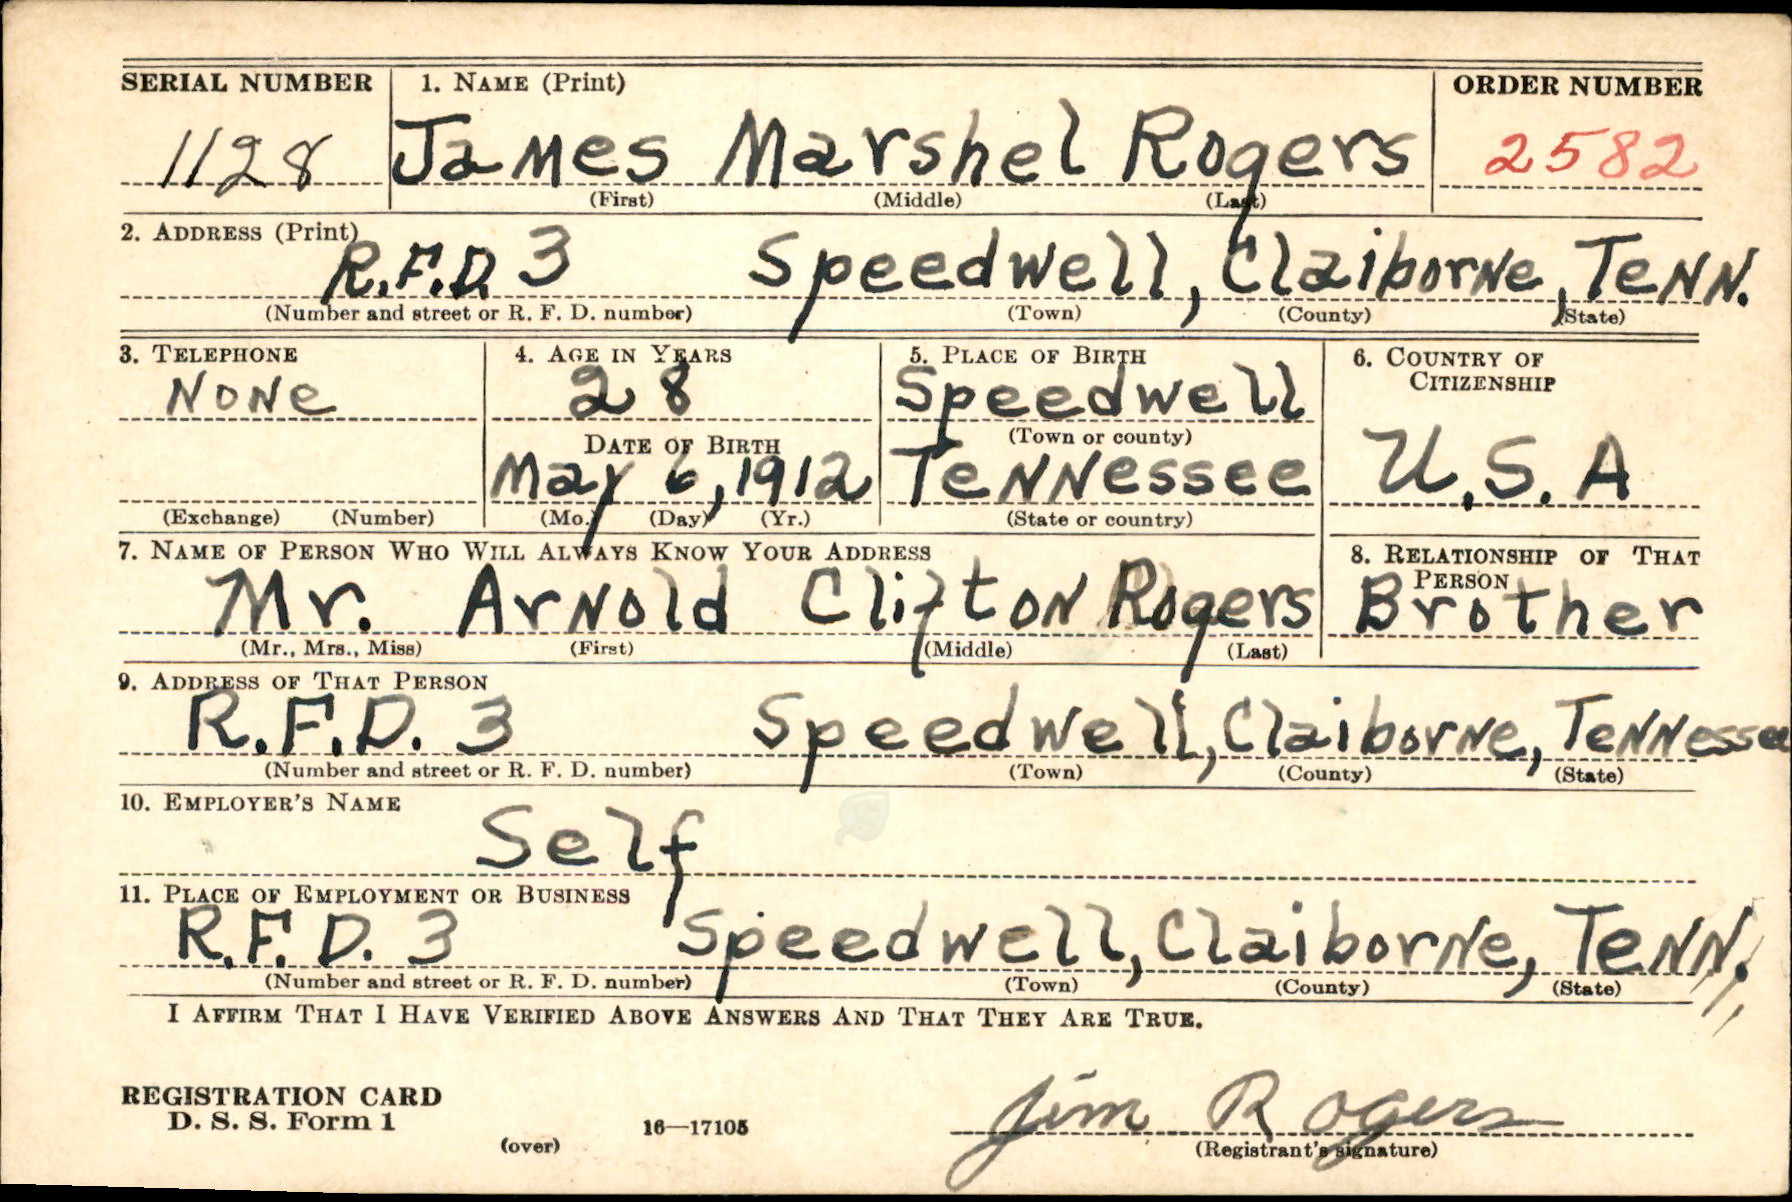 SERIAL NUMBER 1. NAME (Print) ORDER NUMBER
1128 James Marshel Rogers 2582
(First) (Middle) (Last)
2. ADDRESS (Print)
R.F.D. 3 Speedwell, Claiborne, Tenn.
(Number and street or R. F. D. number) (Town) (County) (State)
3. TELEPHONE 4. AGE IN YEARS 5. PLACE OF BIRTH 6. COUNTRY OF
CITIZENSHIP
None 28 Speedwell
DATE OF BIRTH (Town or county)
May 6, 1912 Tennessee U.S.A
(Exchange) (Number) (Mo.) (Day) (Yr.) (State or country)
7. NAME OF PERSON WHO WILL ALWAYS KNOW YOUR ADDRESS 8. RELATIONSHIP OF THAT
PERSON
Mr. Arnold Clifton Rogers Brother
(Mr., Mrs., Miss) (First) (Middle) (Last)
9. ADDRESS OF THAT PERSON
R.F.D. 3 Speedwell, Claiborne, Tennessee
(Number and street or R. F. D. number) (Town) (County) (State)
10. EMPLOYER'S NAME
Self
11. PLACE OF EMPLOYMENT OR BUSINESS
R.F.D. 3 Speedwell, Claiborne, Tenn.
(Number and street or R. F. D. number) (Town) (County) (State)
I AFFIRM THAT I HAVE VERIFIED ABOVE ANSWERS AND THAT THEY ARE TRUE.
REGISTRATION CARD
D. S. S. Form 1
(over) 16—17105
Jim Rogers
(Registrant's signature)